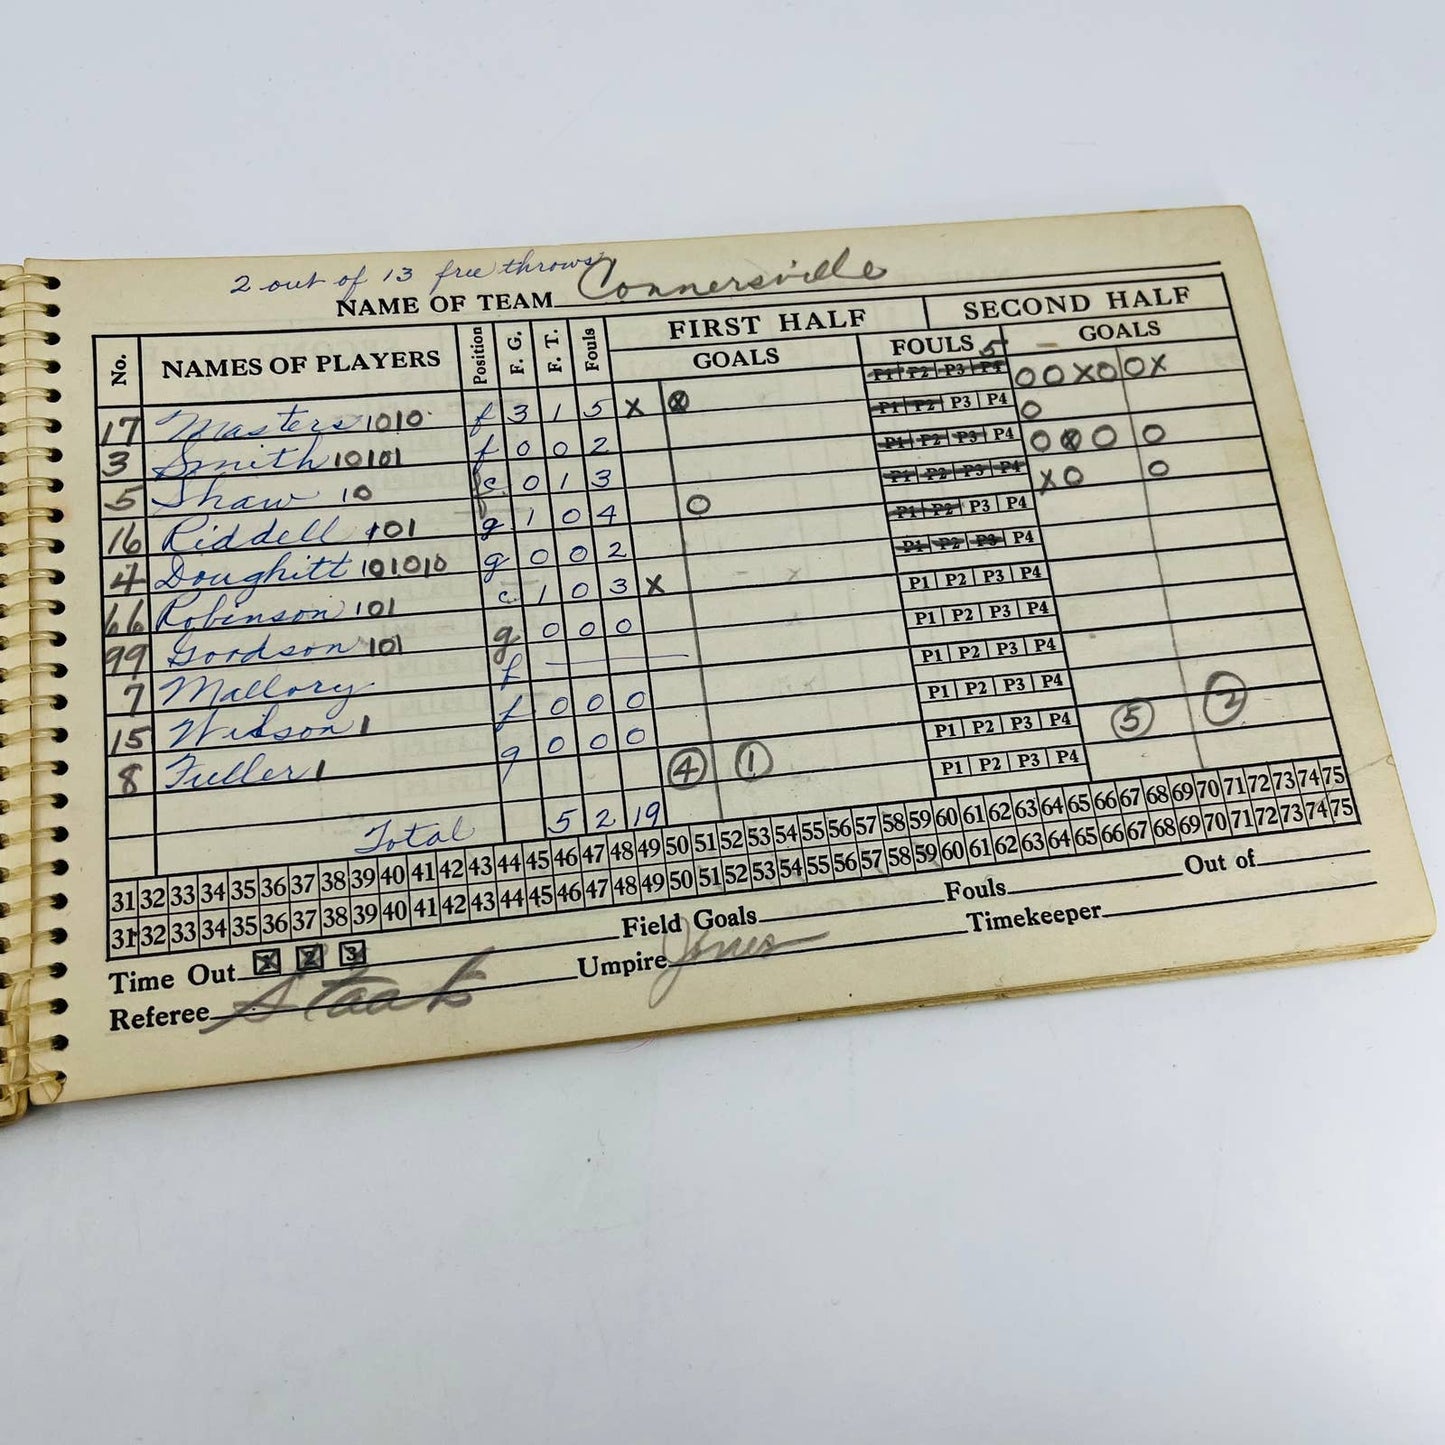 2 out of 13 free throws
NAME OF TEAM Connersville
No. NAMES OF PLAYERS Position F. G. F. T. Fouls FIRST HALF GOALS FOULS SECOND HALF GOALS
5
17 Masters 1010 f 3 1 5 X P1 P2 P3 P4 O O X O O X
3 Smith 10101 f 0 0 2 P1 P2 P3 P4 O
5 Shaw 10 c 0 1 3 P1 P2 P3 P4 O O O O
16 Riddell 101 g 1 0 4 O P1 P2 P3 P4 X O O
4 Doughitt 101010 g 0 0 2 P1 P2 P3 P4
66 Robinson 101 c 1 0 3 X P1 P2 P3 P4
99 Goodson 101 g 0 0 0 P1 P2 P3 P4
7 Mallory f P1 P2 P3 P4
15 Wilson 1 f 0 0 0 P1 P2 P3 P4
8 Fuller 1 g 0 0 0 P1 P2 P3 P4
4 1 P1 P2 P3 P4 5 2
Total 5 2 19 P1 P2 P3 P4
31 32 33 34 35 36 37 38 39 40 41 42 43 44 45 46 47 48 49 50 51 52 53 54 55 56 57 58 59 60 61 62 63 64 65 66 67 68 69 70 71 72 73 74 75
31 32 33 34 35 36 37 38 39 40 41 42 43 44 45 46 47 48 49 50 51 52 53 54 55 56 57 58 59 60 61 62 63 64 65 66 67 68 69 70 71 72 73 74 75
Time Out 1 2 3 Field Goals Fouls Out of
Referee Umpire Jones Timekeeper